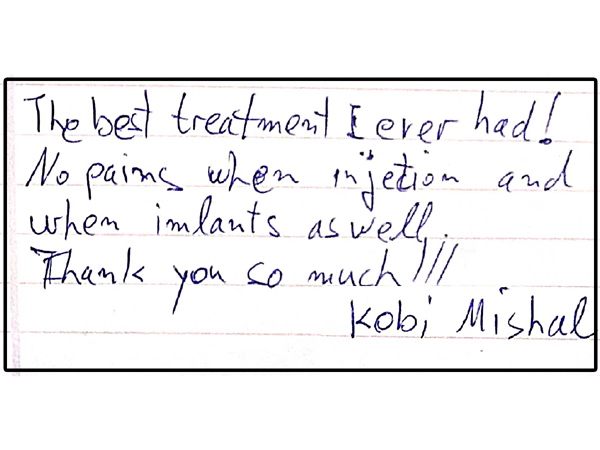 The best treatment I ever had!
No pains when injetion and
when imlants as well.
Thank you so much!!!
Kobi Mishal